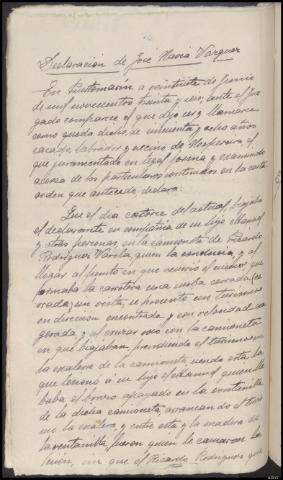 Declaración de José Navia Vazquez
En Puertomarín a veintisiete de junio
de mil novecientos treinta y uno, ante el Juz
gado comparece el que dijo ser y llamarse
como queda dicho, de cincuenta y ocho años
casado, labrador y vecino de Hospeseira, el
que juramentado en legal forma y examinado
acerca de los particulares contenidos en la carta
orden que antecede, declara:
Que el día catorce del actual viajaba
el declarante en compañía de su hijo Manuel
y otras personas en la camioneta de Ricardo
Rodríguez Varela, quien la conducía, y al
llegar al punto en que ocurrió el suceso, que
formaba la carretera una curva cerrada, ce
rrada, sin vista, se presentó un turismo
en dirección encontrada y con velocidad exa
gerada, y al cruzarse con la camioneta
en que viajaban, prendiendo el turismo en
la escalera de la camioneta, siendo esta la
que lesionó a su hijo Manuel quien lle
vaba el brazo apoyado en la ventanilla
de la dicha camioneta, arrancando el turis
mo la escalera, y entre esta y la madera de
la ventanilla, fueron quien le causaron la
lesión, sin que el Ricardo Rodríguez que